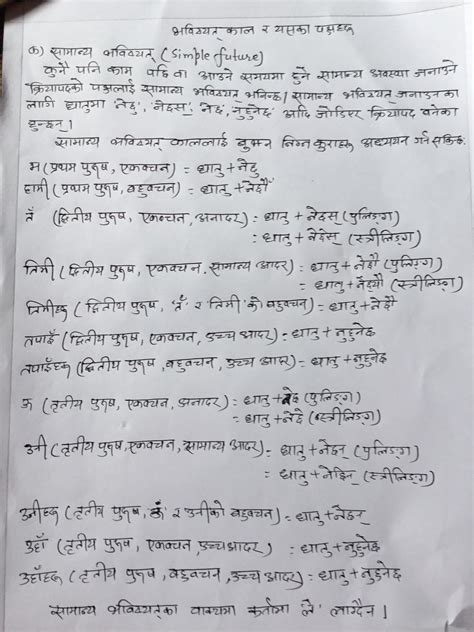 भविष्यत् काल र यसका पक्षहरू
क) सामान्य भविष्यत् (Simple future)
कुनै पनि काम पछि वा आउने समयमा हुने सामान्य अवस्था जनाउने
क्रियापदको पक्षलाई सामान्य भविष्यत् भनिन्छ। सामान्य भविष्यत् जनाउनका
लागि धातुमा 'नेछु', 'नेछस्', 'नेछ', 'नुहुनेछ' आदि जोडिएर क्रियापद बनेका
हुन्छन्।
सामान्य भविष्यत् काललाई बुझ्न निम्न कुराहरू अध्ययन गर्न सकिन्छ:
म (प्रथम पुरुष, एकवचन) = धातु + नेछु
हामी (प्रथम पुरुष, बहुवचन) = धातु + नेछौं
तँ (द्वितीय पुरुष, एकवचन, अनादर) = धातु + नेछस् (पुलिङ्ग)
= धातु + नेछेस् (स्त्रीलिङ्ग)
तिमी (द्वितीय पुरुष, एकवचन, सामान्य आदर) = धातु + नेछौ (पुलिङ्ग)
= धातु + नेछ्यौ (स्त्रीलिङ्ग)
तिमीहरू (द्वितीय पुरुष, 'तँ' र 'तिमी' को बहुवचन) = धातु + नेछौ
तपाईं (द्वितीय पुरुष, एकवचन, उच्च आदर) = धातु + नुहुनेछ
तपाईंहरू (द्वितीय पुरुष, बहुवचन, उच्च आदर) = धातु + नुहुनेछ
ऊ (तृतीय पुरुष, एकवचन, अनादर) = धातु + नेछ (पुलिङ्ग)
= धातु + नेछे (स्त्रीलिङ्ग)
उनी (तृतीय पुरुष, एकवचन, सामान्य आदर) = धातु + नेछन् (पुलिङ्ग)
= धातु + नेछिन् (स्त्रीलिङ्ग)
उनीहरू (तृतीय पुरुष, ऊ र उनीको बहुवचन) = धातु + नेछन्
उहाँ (तृतीय पुरुष, एकवचन, उच्च आदर) = धातु + नुहुनेछ
उहाँहरू (तृतीय पुरुष, बहुवचन, उच्च आदर) = धातु + नुहुनेछ
सामान्य भविष्यत्का वाक्यमा कर्तामा 'ले' लाग्दैन।